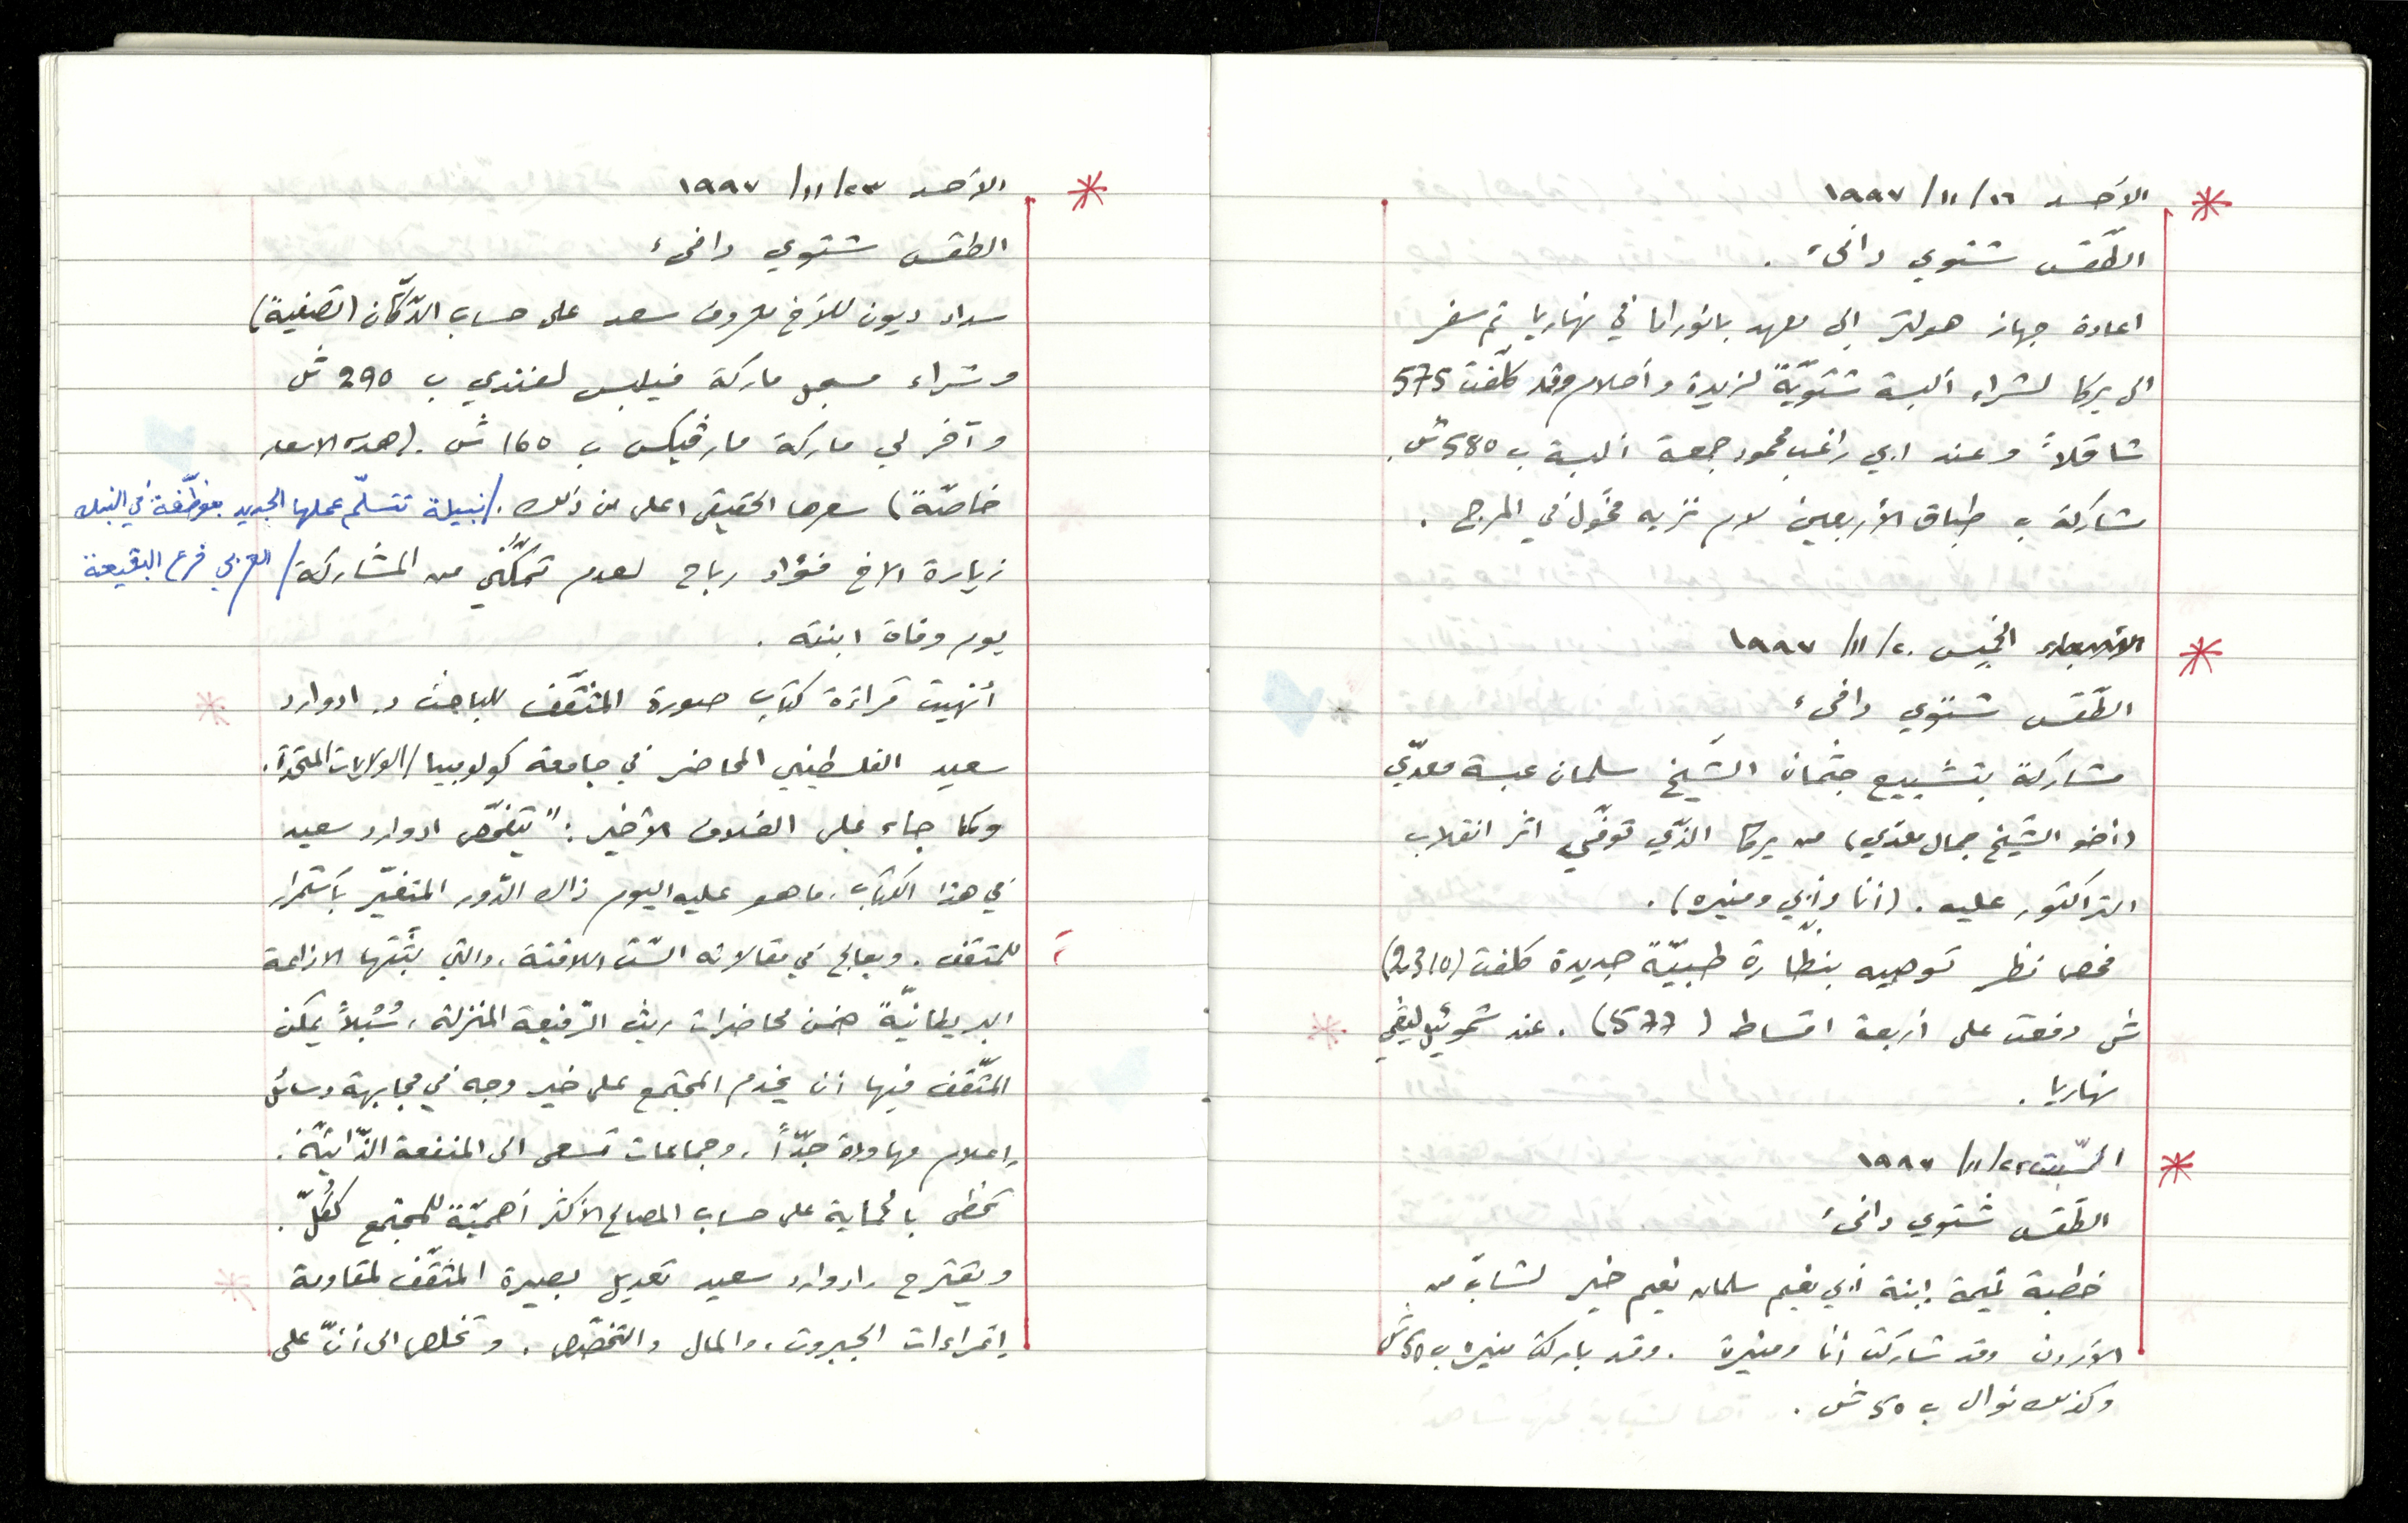 الأحد ١٦/ ١١/ ١٩٩٧
الطّقس شتوي دافئ .
اعادة جهاز هولتر إلى معهد بانوراما في نهاريا ثم سفر
الى يركا لشراء ألبسة شتويّةً لزيدة وأحلام وقد كلّفت 575
شاقلاً وعند ابي راغب محمود جمعة ألبسة ب 580 ش.
مشاركة ب طباق الأربعين لام نزيه مخّول في المرج .
الخميس ٢٠/ ١١/ ١٩٩٧
الطّقس شتوي دافئ
مشاركة بتشييع جثمان الشّيخ سلمان عبسة معدّي
(أخو الشّيخ جمال معدّي) من يركا الذّي توفّي اثر انقلاب
التراكتور عليه . (أنا وأبي ومنيره) .
فحص نظر توصيه بنظّارة طبيّةً جديدة كلفت (2310)
ش دفعت على أربعة اقساط (577) . عند شموئيل ليفي
نهاريا .
السّبت ٢٢/ ١١/ ١٩٩٧
الطّقس شتوي دافئ
خطبة إبنة أبي نعيم سلمان نعيم خير لشابّ من
الأردن وقد شاركت أنا ومنيرة . وقد باركت منيره ب 50 ش
وكذلك نوال ب 50 ش .
الأحد ٢٣/ ١١/ ١٩٩٧
الطقس شتوي دافئ
سداد ديون للأخ معروف سعد على حساب الدّكّان (تصفيةً)
وشراء مسجل ماركة فيلبس لفندي ب 290 ش
وآخر لي ماركة مارڤيكس ب 165 ش . (هذه الاسعار
خاصّةً) سعرها الحقيقي اعلى من ذلك . / نبيلة تتسلّم عملها الجديد بموظّفة في البنك
زيارة الاخ فؤاد رباح لعدم تمكّني من المشاركة / العربي فرع البقيعة
يوم وفاة ابنته .
أنهيت قراءة كتاب صورة المثقّف للباحث د. ادوارد
سعيد الفلسطيني المحاضر في جامعة كولومبيا / الولايات المتّحدة.
وكما جاء على الغلاف الأخير : " يتفحّص ادوارد سعيد
في هذا الكتاب، ما هو عليه اليوم ذاك الدّور المتغيّر بأستمرار
للمثقف . ويعالج في مقالاته السّت اللافتة، والتي بثّتها الاذاعة
البريطانيّةً ضمن محاضرات ريث الرّفيعة المنزلة، سُبُلاً يمكن
المثّقف فيها أن يخدم المجتمع على خير وجه في مجابهة وسائل
إعلام مهاودة جدّاً، وجماعات تسعى الى المنفعة الذّاتيّة.
تحظى بالحماية على حساب المصالح الأكثر أهميّة للمجتمع كَكُلّ.
ويقترح ادوارد سعيد تعديل بصيرة المثقّف لمقاومة
إغراءات الجبروت، والمال والتخصّص . وتخلص الى أنّ على